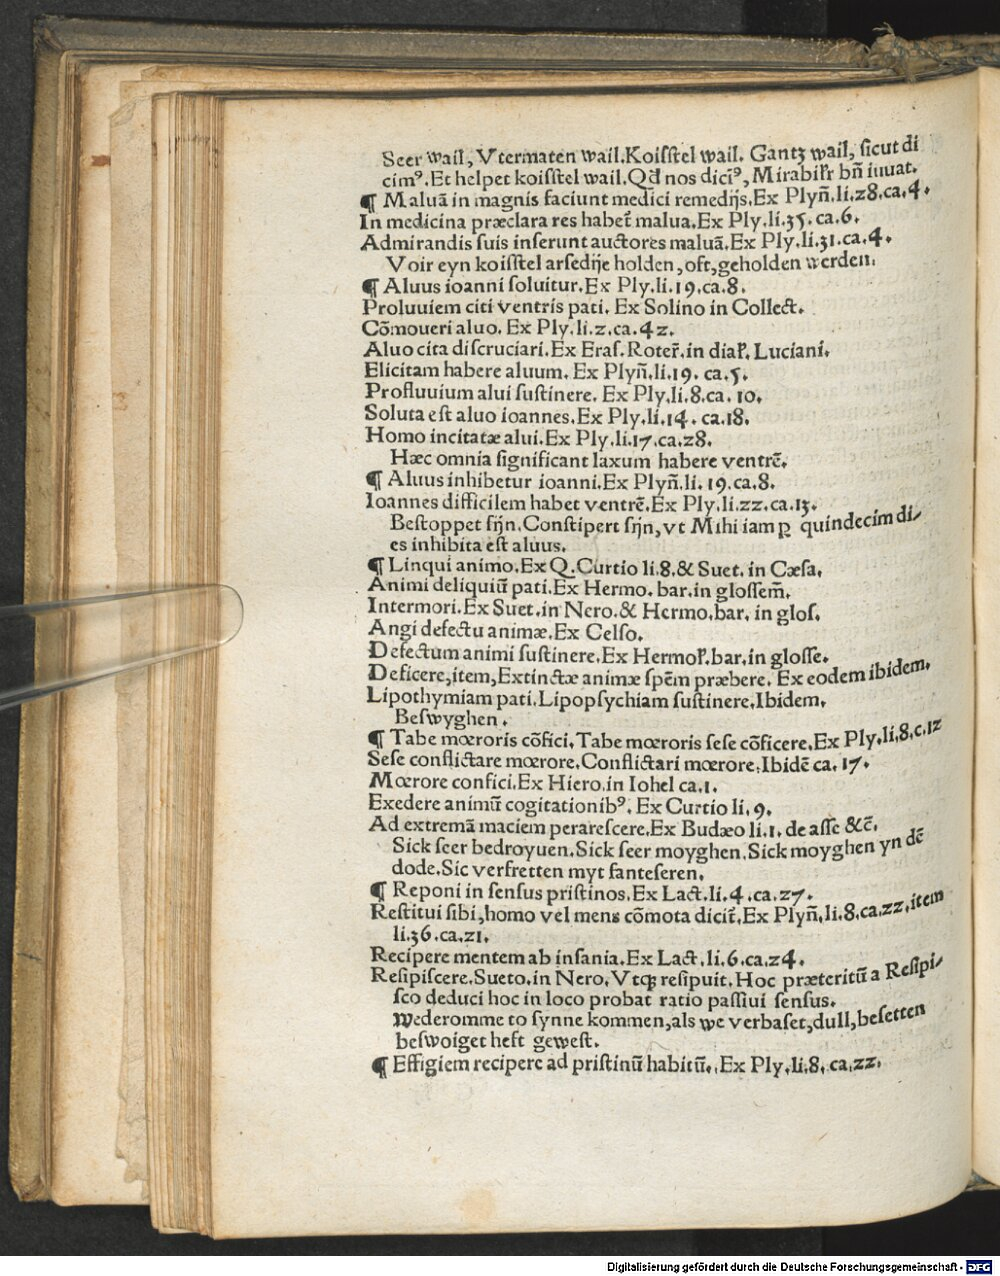 Seer wail, Vtermaten wail. Koisſtel wail. Gantʒ wail, ſicut di
cimꝰ. Et helpet koisſtel wail. Qđ nos diciꝰ, Mirabilr bñ iuuat.
¶ Maluã in magnis faciunt medici remedijs. Ex Plyñ. li. z8. ca. 4.
In medicina præclara res habet̃ malua. Ex Ply. li. 35. ca. 6.
Admirandis ſuis inſerunt auctores maluã. Ex Ply. li. 31. ca. 4.
Voir eyn koisſtel arſedije holden, oft, geholden werden.
¶ Aluus ioanni ſoluitur. Ex Ply. li. 19. ca. 8.
Proluuiem citi ventris pati. Ex Solino in Collect.
Cõmoueri aluo. Ex Ply. li. z. ca. 4z.
Aluo cita diſcruciari. Ex Eraſ. Roter̃. in dial̃. Luciani.
Elicitam habere aluum. Ex Plyñ. li. 19. ca. 5.
Profluuium alui ſuſtinere. Ex Ply. li. 8. ca. 10.
Soluta eſt aluo ioannes. Ex Ply. li. 14. ca. 18.
Homo incitatæ alui. Ex Ply. li. 17. ca. z8.
Hæc omnia ſignificant laxum habere ventrẽ.
¶ Aluus inhibetur ioanni. Ex Plyñ. li. 19. ca. 8.
Ioannes difficilem habet ventrẽ. Ex Ply. li. zz. ca. 13.
Beſtoppet ſijn. Conſtipert ſijn, vt Mihi iam ꝑ quindecim di⸗
es inhibita eſt aluus.
¶ Linqui animo. Ex Q. Curtio li. 8. & Suet. in Cæſa.
Animi deliquiũ pati. Ex Hermo. bar. in gloſſem̃.
Intermori. Ex Suet. in Nero. & Hermo. bar. in gloſ.
Angi defectu animæ. Ex Celſo.
Defectum animi ſuſtinere. Ex Hermol̃. bar. in gloſſe.
Deficere, item, Extinctæ animæ ſpẽm præbere. Ex eodem ibidem.
Lipothymiam pati. Lipopſychiam ſuſtinere. Ibidem.
Beſwyghen.
¶ Tabe mœroris cõfici. Tabe mœroris ſeſe cõficere. Ex Ply. li. 8. c. 1z
Seſe conflictare mœrore. Conflictari mœrore. Ibidẽ ca. 17.
Mœrore confici. Ex Hiero. in Iohel ca. 1.
Exedere animũ cogitationibꝰ. Ex Curtio li. 9.
Ad extremã maciem perareſcere. Ex Budæo li. 1. de aſſe &c̃.
Sick ſeer bedroyuen. Sick ſeer moyghen. Sick moyghen yn dẽ
dode. Sic verfretten myt fanteſeren.
¶ Reponi in ſenſus priſtinos. Ex Lact. li. 4. ca. z7.
Reſtitui ſibi, homo vel mens cõmota dicit̃. Ex Plyñ. li. 8. ca. zz. item
li. 36. ca. z1.
Recipere mentem ab inſania. Ex Lact. li. 6. ca. z4.
Reſipiſcere. Sueto. in Nero. Vtqꝫ reſipuit. Hoc præteritũ a Reſipi⸗
ſco deduci hoc in loco probat ratio paſſiui ſenſus.
Wederomme to ſynne kommen, als we verbaſet, dull, beſetten
beſwoiget heft geweſt.
¶ Effigiem recipere ad priſtinũ habitũ. Ex Ply. li. 8. ca. zz.
Digitalisierung gefördert durch die Deutsche Forschungsgemeinschaft - DFG